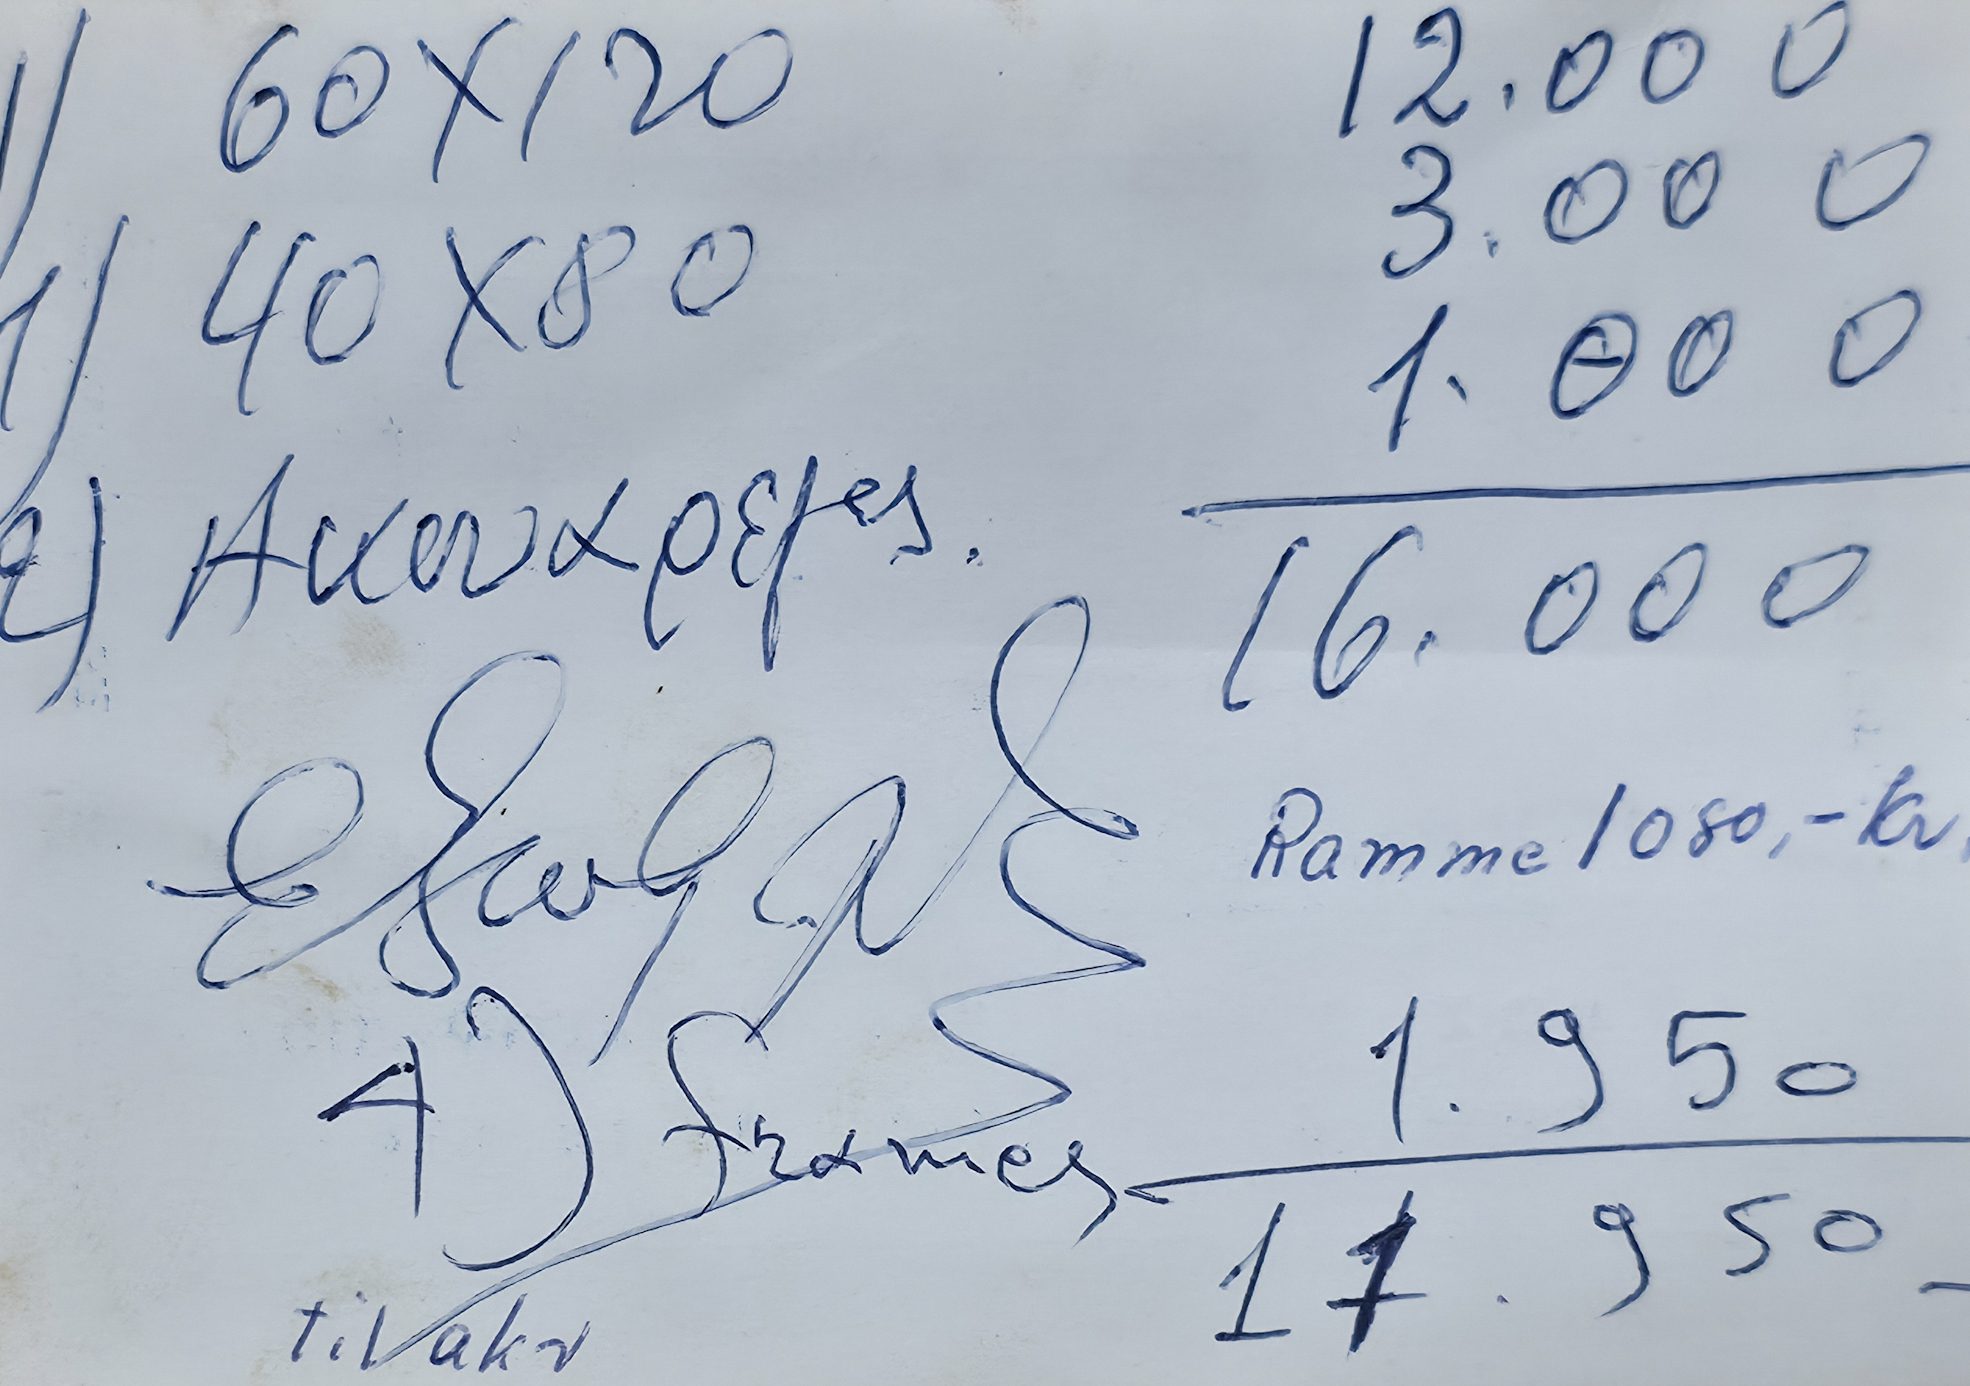 1) 60X120 12.000
1) 40X80 3.000
1.000
2) Ακουαρελες.
16.000
Ramme 1080,- kr.
1.950
4) frames
17.950
til akr